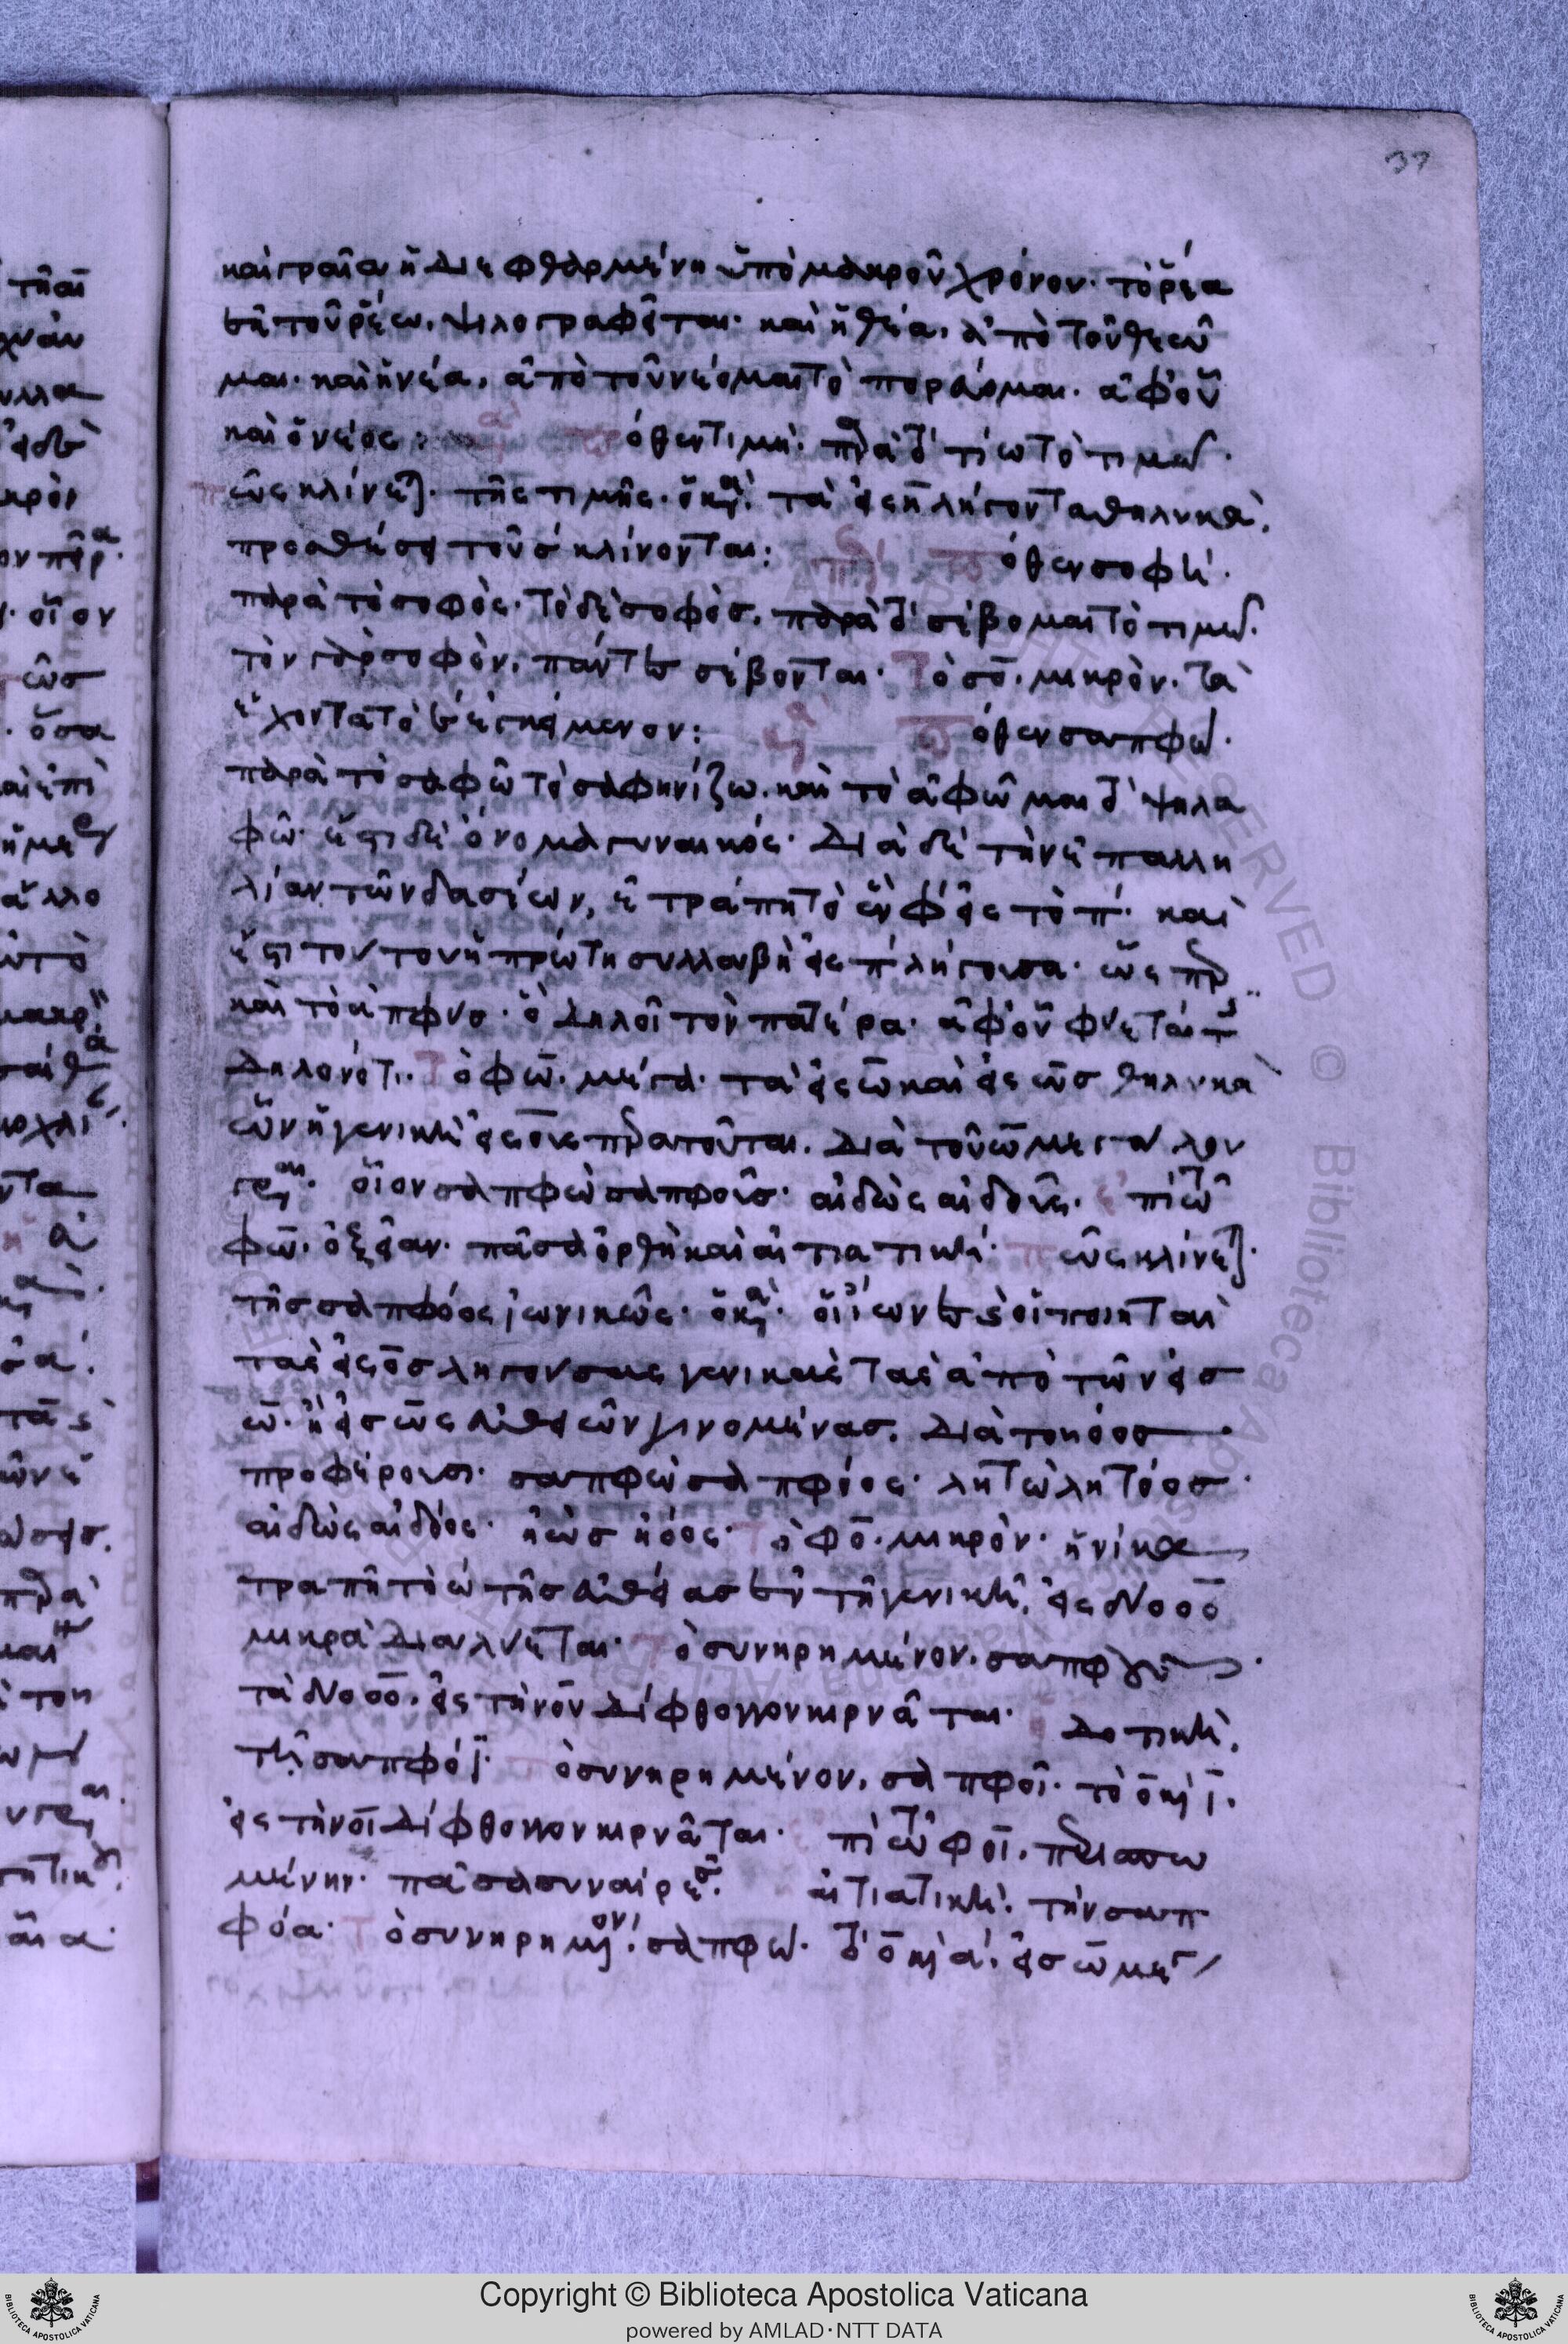 37
καὶ γραῖα ἡ διεφθαρμένη ὑπὸ μακροῦ χρόνου· τὸ ῥέα
ἐκ τοῦ ῥέω, ψιλογραφεῖται· καὶ ἡ θέα, ἀπὸ τοῦ θεῶ
μαι· καὶ ἡ νέα, ἀπὸ τοῦ νέομαι τὸ πορεύομαι· ἀφ' οὗ
καὶ ὁ νέος: ὅθεν τιμή· παρὰ τὸ τίω τὸ τιμῶ·
πῶς κλίνεται· τῆς τιμῆς· τὰ εἰς η λήγοντα θηλυκὰ,
προσθέσει τοῦ σ κλίνονται: ὅθεν σοφή·
παρὰ τὸ σοφός· τὸ δὲ σοφὸς, παρὰ τὸ σέβομαι τὸ τιμῶ·
τὸν γὰρ σοφὸν, πάντες σέβονται· Τὸ σο, μικρὸν· τὰ
ἔχοντα τὸ ε ἐγκείμενον: πόθεν σαπφώ·
παρὰ τὸ σαφῶ τὸ σαφηνίζω· καὶ τὸ ἀφῶμαι τὸ ψηλα
φῶ· ἔστι δὲ ὄνομα γυναικός· Διὰ δὲ τὴν ἐπαλλη
λίαν τῶν δασέων, ἐτράπη τὸ ἓν φ εἰς τὸ π· καὶ
ἔστι τούτου ἡ πρώτη συλλαβὴ εἰς π λήγουσα· ὡς
καὶ τὸ ἄπφυς· ὃ δηλοῖ τὸν πατέρα· ἀφ' οὗ φύεταί τις
δηλονότι· Τὸ φω, μέγα· τὰ εἰς ω καὶ εἰς ως θηλυκὰ
ὧν ἡ γενικὴ εἰς ους περατοῦται, διὰ τοῦ ω μεγάλου
γράφεται· οἷον σαπφὼ σαπφοῦς· αἰδὼς αἰδοῦς· τὶ τὸ
φω, ὀξεῖαν· πᾶσα ὀρθὴ καὶ αἰτιατική· πῶς κλίνεται·
τῆς σαπφόος ἰωνικῶς· οἱ ἴωνες οἱ ποιηταὶ
τὰς εἰς ος ληγούσας γενικὰς τὰς ἀπὸ τῶν εἰς
ω· ἢ εἰς ως εὐθειῶν γινομένας, διὰ τοῦ όος
προφέρουσι· σαπφὼ σαπφόος· λητὼ λητόος·
αἰδὼς αἰδόος· ἠὼς ἠόος· Τὸ φο, μικρὸν· ἡνίκα
τραπῇ τὸ ω τῆς εὐθείας ἐν τῇ γενικῇ, εἰς δύο οο
μικρὰ διαλύεται· Τὸ συνηρημένον, σαπφοῦς·
τὰ δύο οο, εἰς τὴν ου δίφθογγον κιρνᾶται· Δοτική,
τῇ σαπφόϊ· Τὸ συνηρημένον, σαπφοῖ· τὸ ο καὶ ι·
εἰς τὴν οι δίφθογγον κιρνᾶται· τὶ τὸ φοι, περισπω
μένην· πᾶσα συναίρεσις· αἰτιατική· τὴν σαπ
φόα· Τὸ συνηρημένον· σαπφώ· τὸ ο καὶ α, εἰς ω μέγα
Copyright © Biblioteca Apostolica Vaticana
powered by AMLAD·NTT DATA